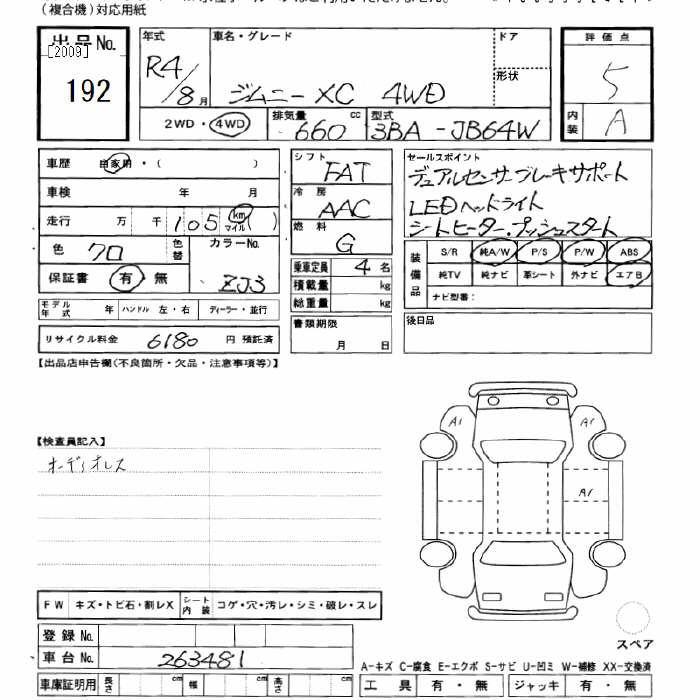 (複合機)対応用紙
出品No.
[2009]
192
年式 R4/8月
車名・グレード ジムニー XC 4WD
ドア
形状
2WD・4WD
排気量 660 cc
型式 3BA-JB64W
評価点 5
内装 A
車歴 自家用・( )
車検 年 月
走行 万 千 105 km マイル
色 クロ 色替 カラーNo. ZJ3
保証書 有・無
モデル年式 年 ハンドル 左・右 ディーラー・並行
リサイクル料金 6180 円 預託済
シフト FAT
冷房 AAC
燃料 G
乗車定員 4 名
積載量 kg
総重量 kg
書類期限 月 日
セールスポイント
デュアルセンサーブレーキサポート
LEDヘッドライト
シートヒーター.プッシュスタート
装備品 S/R 純A/W P/S P/W ABS
純TV 純ナビ 革シート 外ナビ エアB
ナビ型番:
後日品
【出品店申告欄(不良箇所・欠品・注意事項等)】
【検査員記入】
オーディオレス
A1
A1
A1
FW キズ・トビ石・割レX シート内装 コゲ・穴・汚レ・シミ・破レ・スレ
登録No.
車台No. 263481
車庫証明用 長さ cm 幅 cm 高さ cm
スペア
A-キズ C-腐食 E-エクボ S-サビ U-凹ミ W-補修 XX-交換済
工具 有・無 ジャッキ 有・無